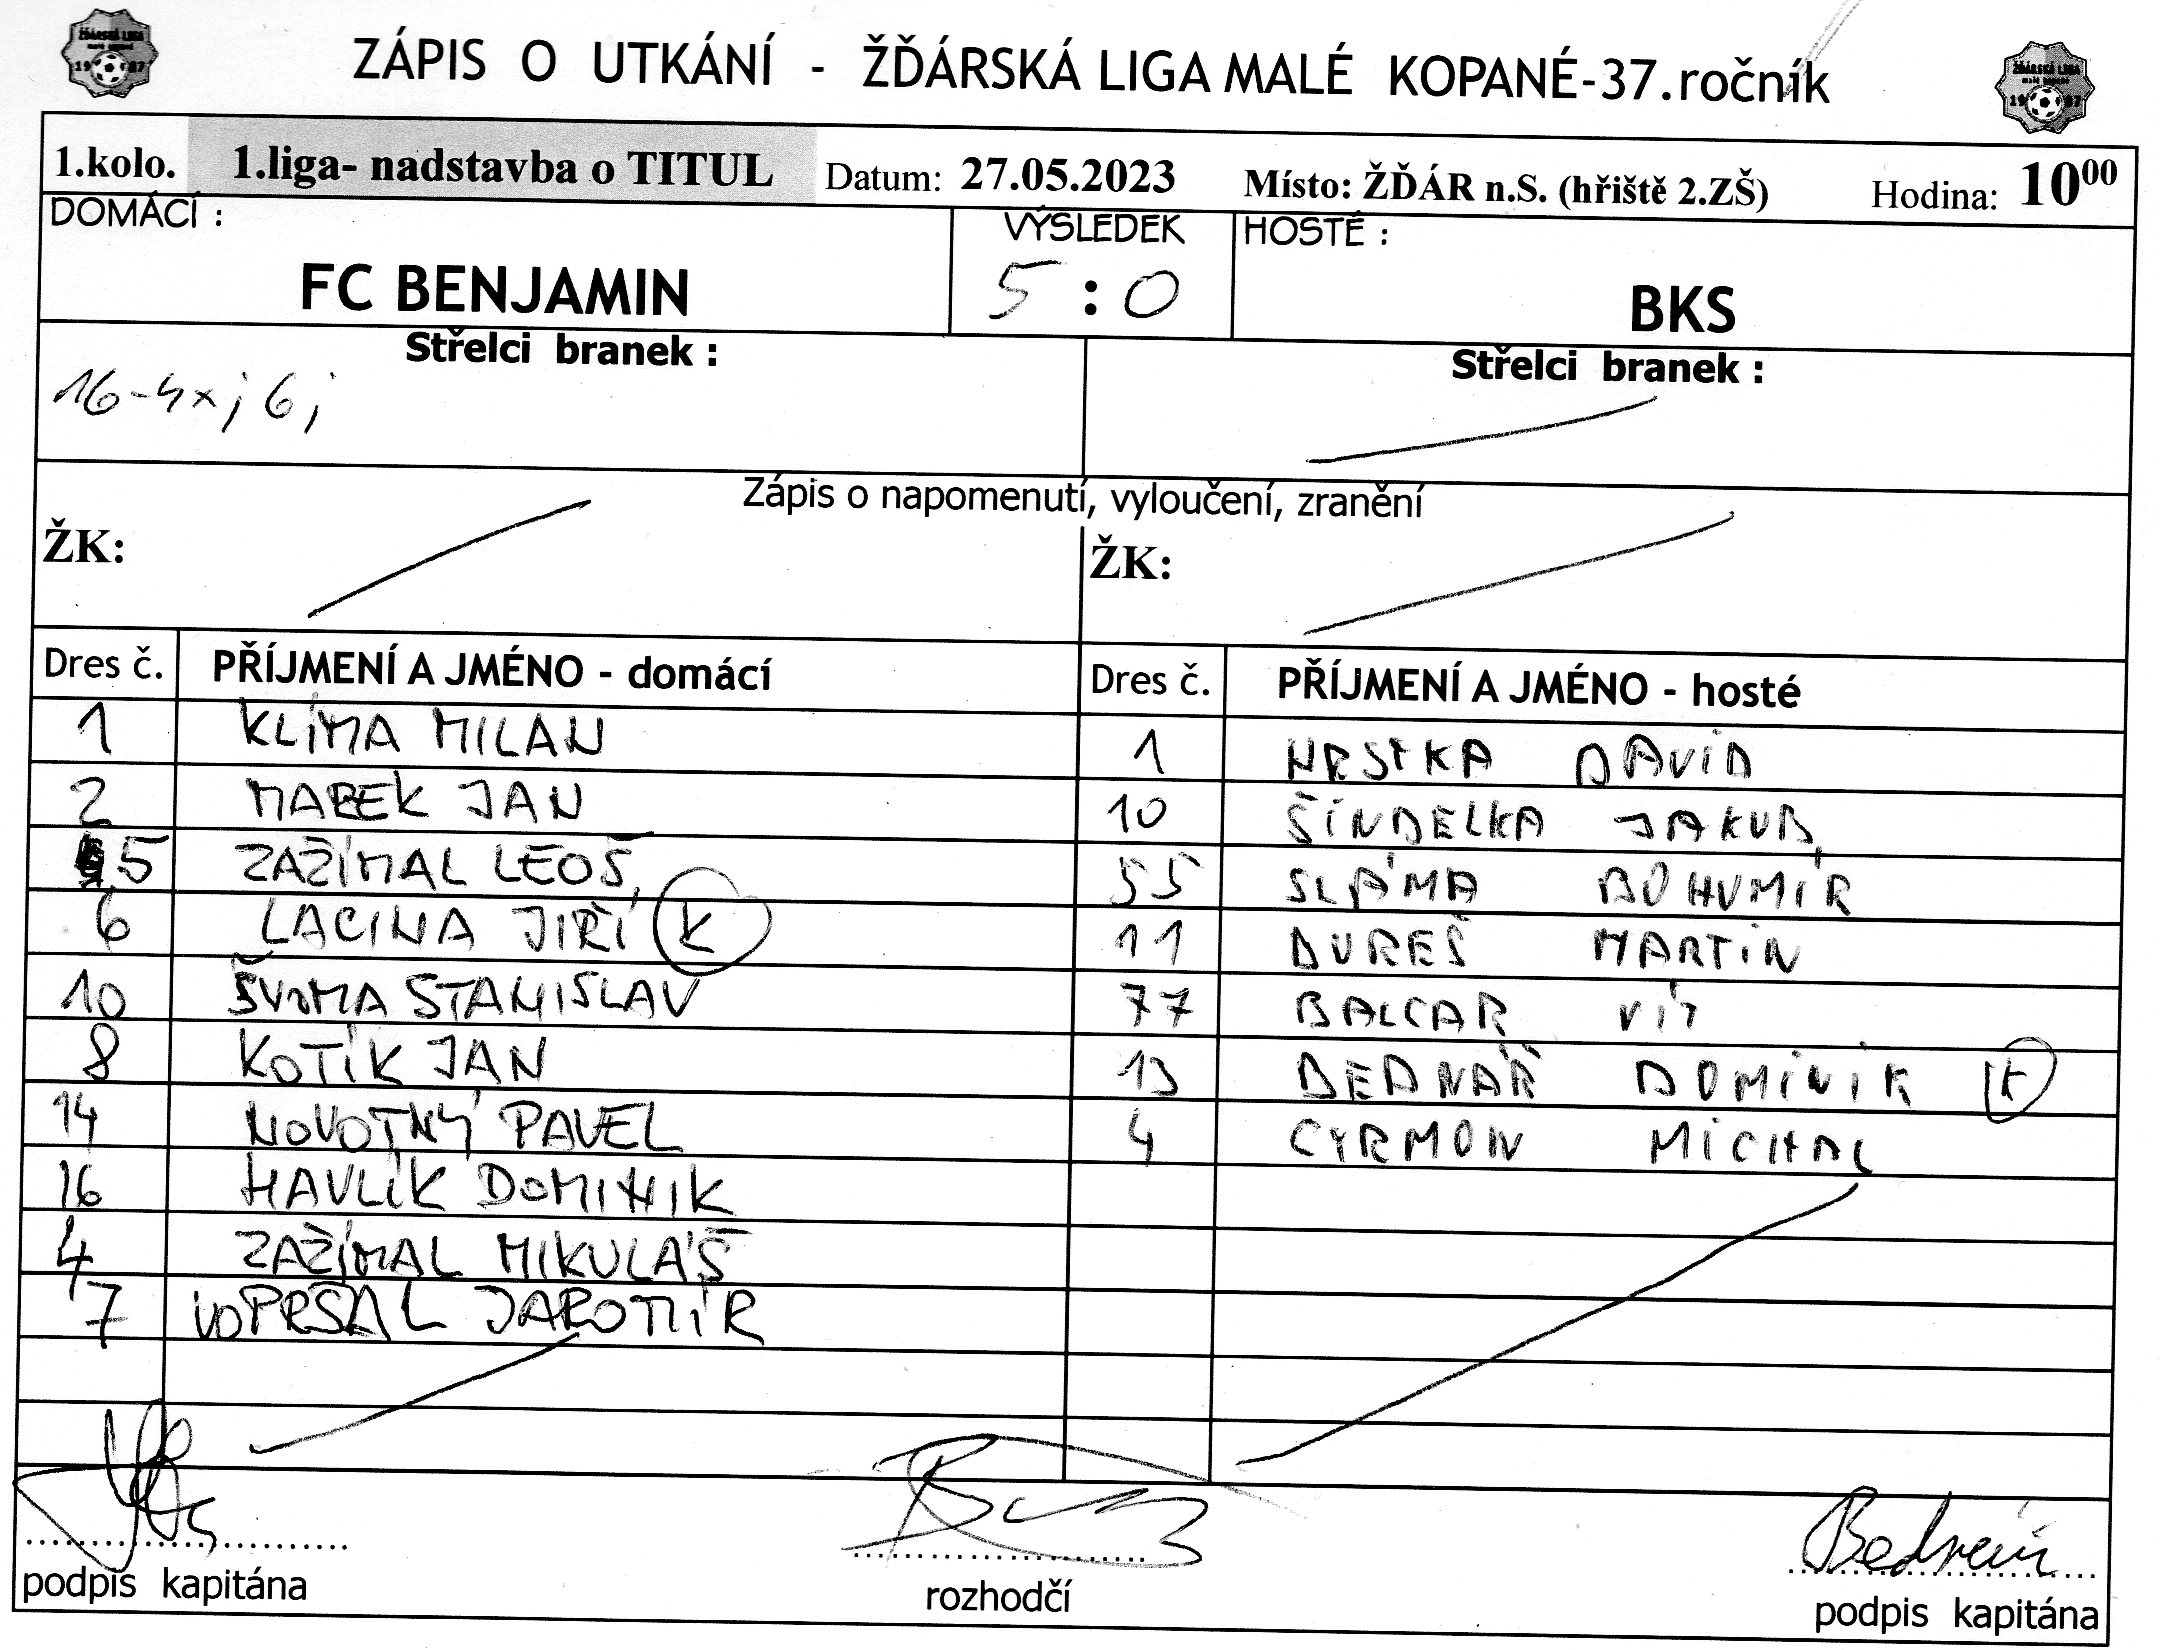 ZÁPIS O UTKÁNÍ - ŽĎÁRSKÁ LIGA MALÉ KOPANÉ-37.ročník
1.kolo. 1.liga- nadstavba o TITUL Datum: 27.05.2023 Místo: ŽĎÁR n.S. (hřiště 2.ZŠ) Hodina: 10⁰⁰
DOMÁCÍ : VÝSLEDEK HOSTÉ :
FC BENJAMIN 5 : 0 BKS
Střelci branek : Střelci branek :
16-4x; 6;
Zápis o napomenutí, vyloučení, zranění
ŽK: ŽK:
Dres č. PŘÍJMENÍ A JMÉNO - domácí Dres č. PŘÍJMENÍ A JMÉNO - hosté
1 KLÍMA MILAN 1 HRSTKA DAVID
2 MAREK JAN 10 ŠINDELKA JAKUB
5 ZAŽÍMAL LEOŠ 55 SLÁMA BOHUMÍR
6 LACINA JIŘÍ K 11 BUREŠ MARTIN
10 ŠVOMA STANISLAV 77 BALCAR VÍT
8 KOTÍK JAN 13 BEDNÁŘ DOMINIK K
14 NOVOTNÝ PAVEL 4 CYRMON MICHAL
16 HAVLÍK DOMINIK
4 ZAŽÍMAL MIKULÁŠ
7 VOPRŠAL JAROMÍR
podpis kapitána rozhodčí podpis kapitána